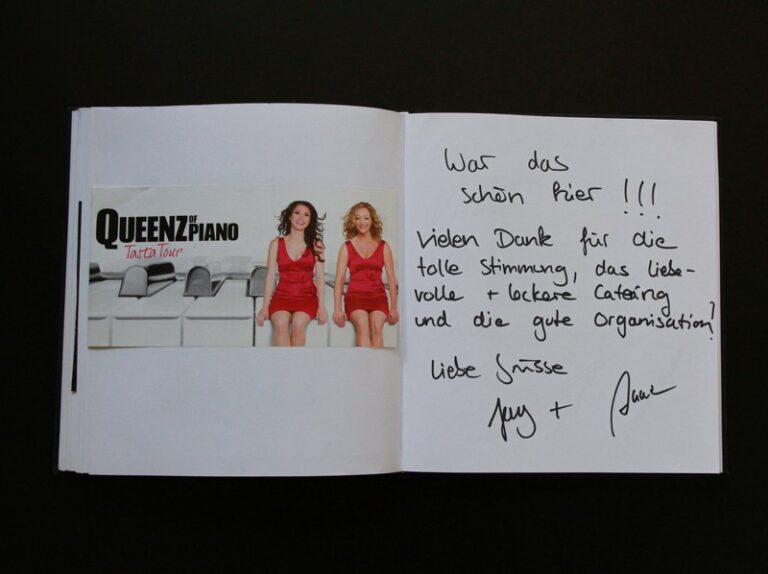 QUEENZ OF PIANO
Tasta Tour
War das
schön hier !!!
Vielen Dank für die
tolle Stimmung, das liebe-
volle + lockere Catering
und die gute Organisation!
Liebe Grüsse
Jenny + Anne